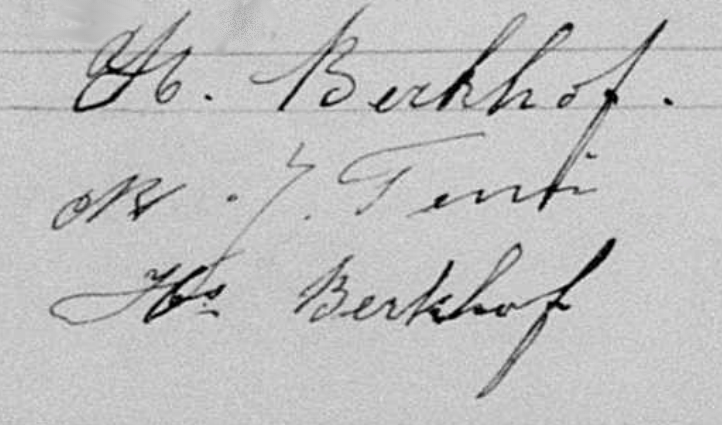 H. Berkhof.
J. Tenn
Hs Berkhof